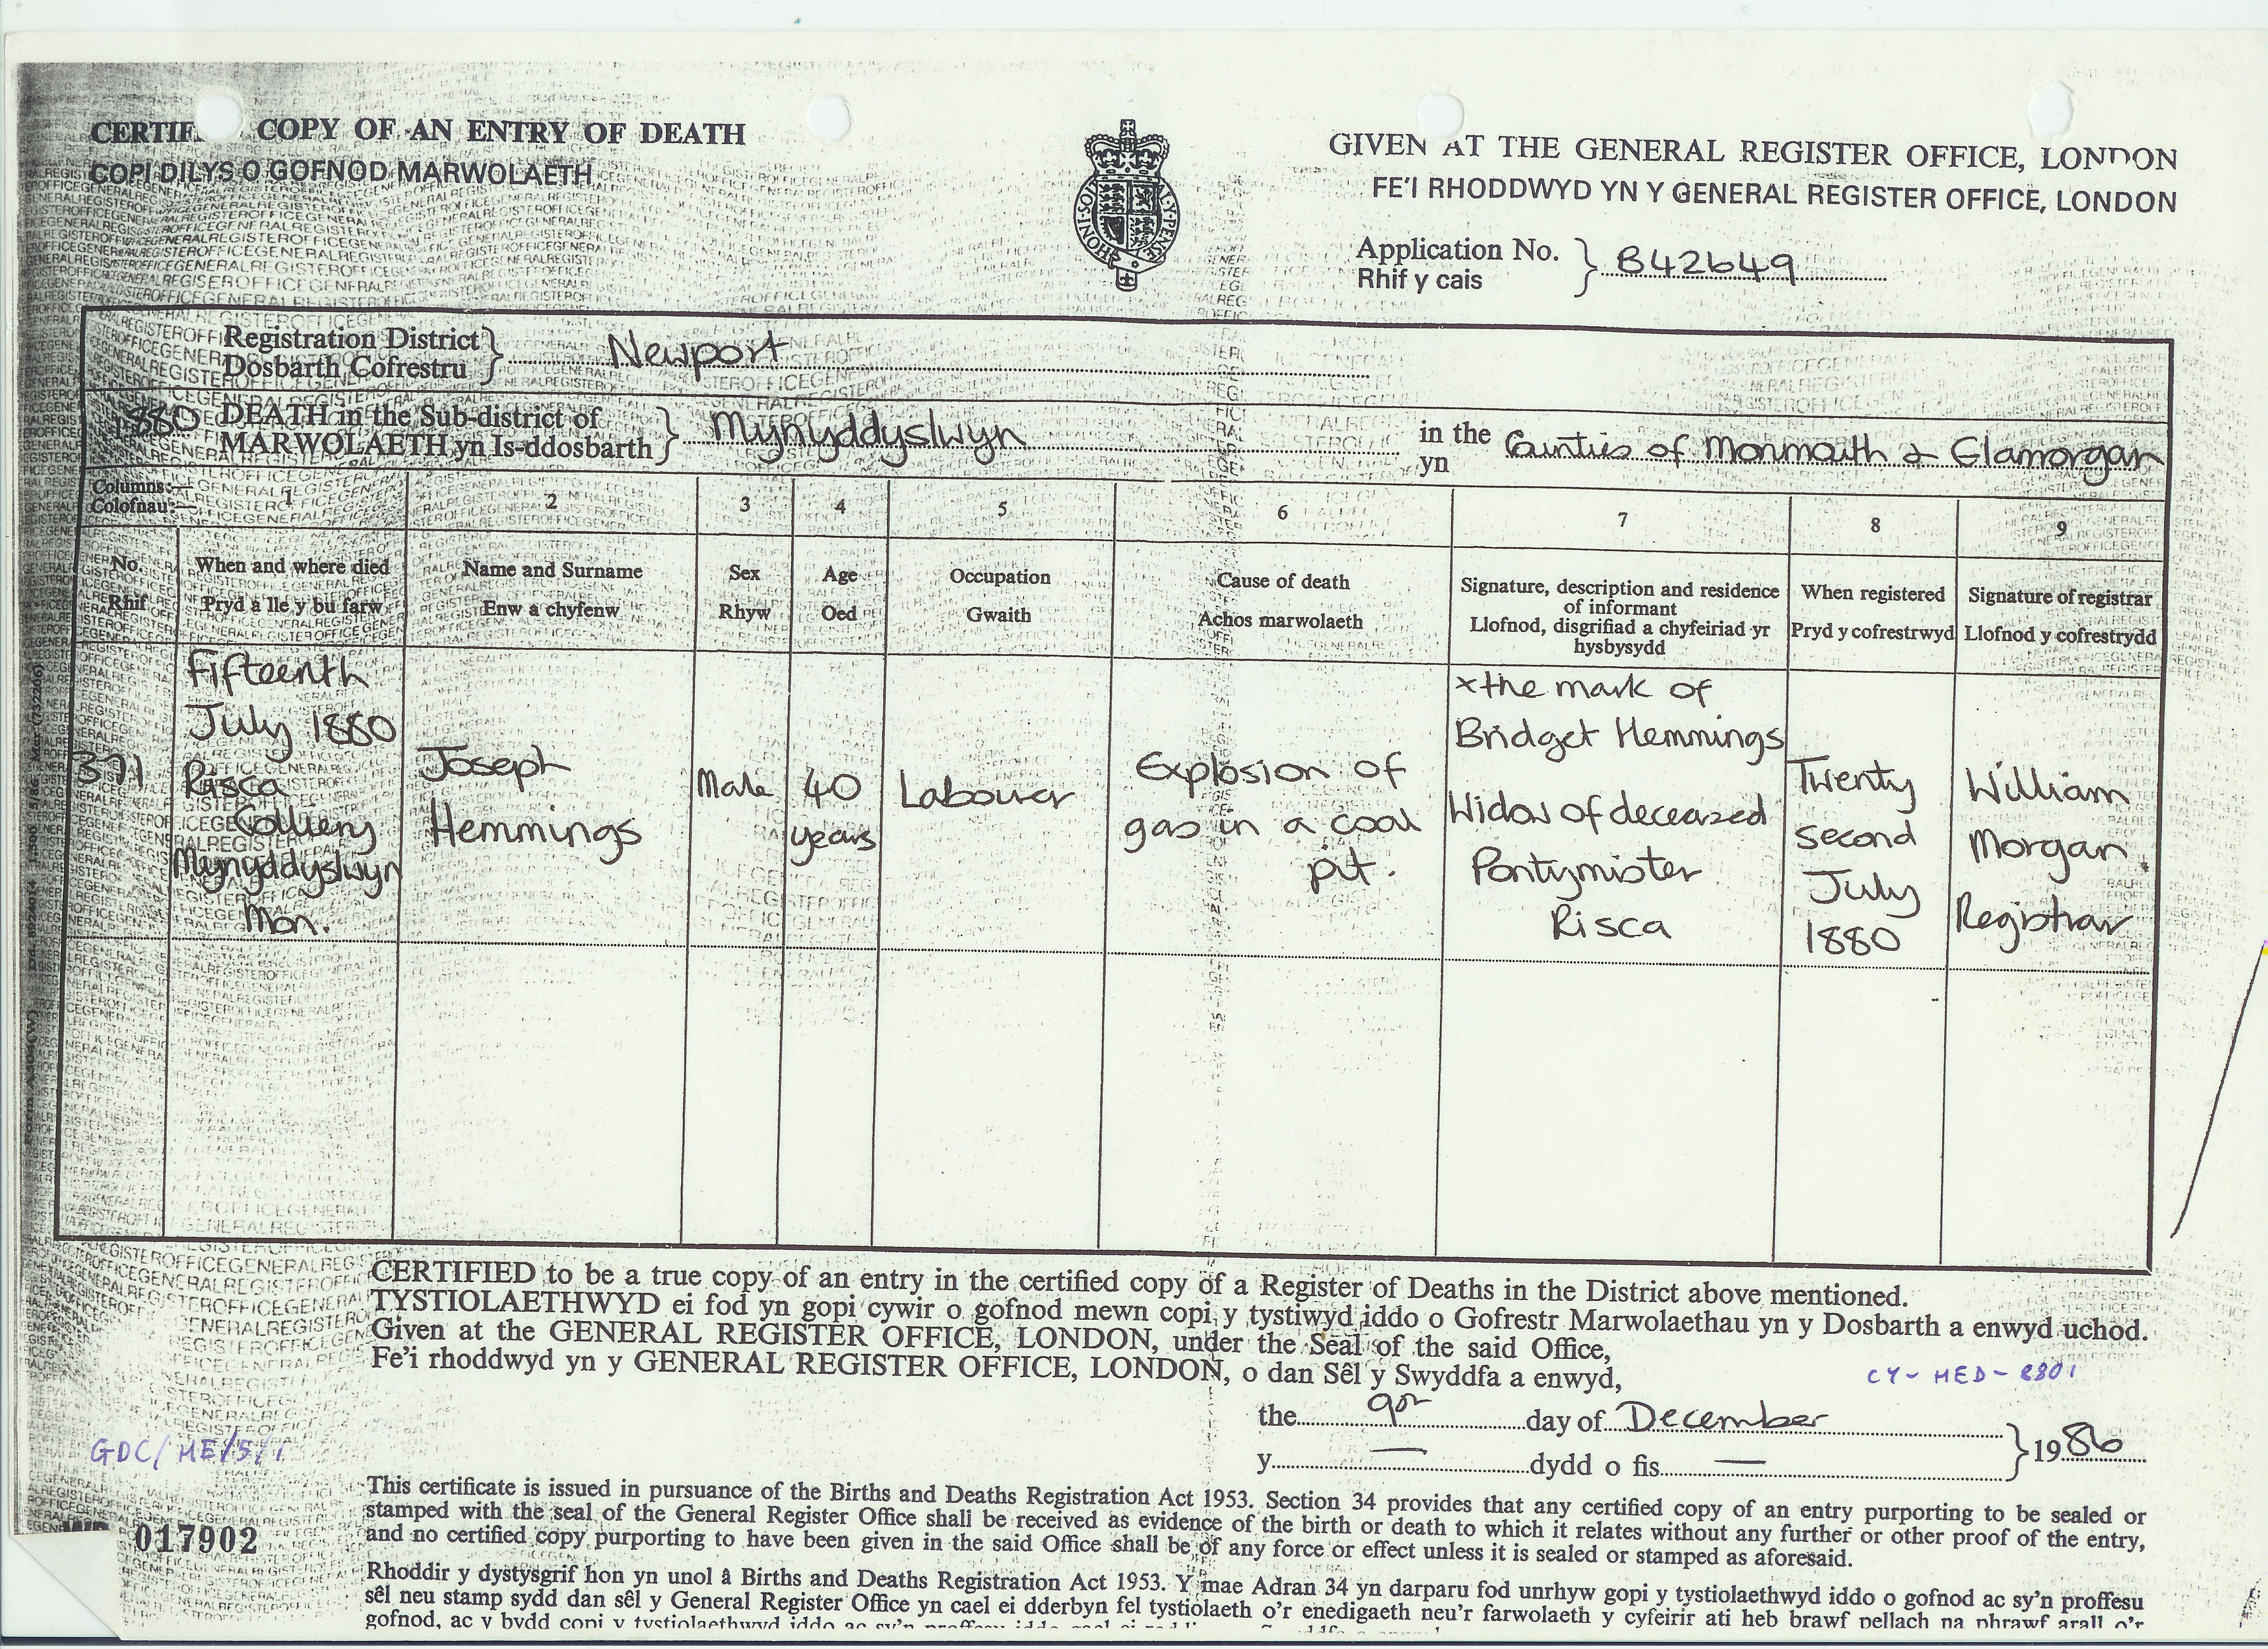 CERTIF COPY OF AN ENTRY OF DEATH
COPI DILYS O GOFNOD MARWOLAETH
GIVEN AT THE GENERAL REGISTER OFFICE, LONDON
FE'I RHODDWYD YN Y GENERAL REGISTER OFFICE, LONDON
HONI SOIT Y PENSE
Application No. } B42649
Rhif y cais
Registration District } Newport
Dosbarth Cofrestru
1880 DEATH in the Sub-district of } Mynyddyslwyn in the Counties of Monmouth & Glamorgan
MARWOLAETH yn Is-ddosbarth yn
Columns:— 1 2 3 4 5 6 7 8 9
Colofnau:—
No. When and where died Name and Surname Sex Age Occupation Cause of death Signature, description and residence of informant When registered Signature of registrar
Rhif Pryd a lle y bu farw Enw a chyfenw Rhyw Oed Gwaith Achos marwolaeth Llofnod, disgrifiad a chyfeiriad yr hysbysydd Pryd y cofrestrwyd Llofnod y cofrestrydd
371
Fifteenth
July 1880
Risca
Colliery
Mynyddyslwyn
Mon.
Joseph
Hemmings
Male
40
years
Labourer
Explosion of
gas in a coal
pit.
x the mark of
Bridget Hemmings
Widow of deceased
Pontymister
Risca
Twenty
second
July
1880
William
Morgan
Registrar
CERTIFIED to be a true copy of an entry in the certified copy of a Register of Deaths in the District above mentioned.
TYSTIOLAETHWYD ei fod yn gopi cywir o gofnod mewn copi y tystiwyd iddo o Gofrestr Marwolaethau yn y Dosbarth a enwyd uchod.
Given at the GENERAL REGISTER OFFICE, LONDON, under the Seal of the said Office,
Fe'i rhoddwyd yn y GENERAL REGISTER OFFICE, LONDON, o dan Sêl y Swyddfa a enwyd,
CY-HED-8801
the 9th day of December } 1986
y — dydd o fis —
GDC/HE/5/1
017902
This certificate is issued in pursuance of the Births and Deaths Registration Act 1953. Section 34 provides that any certified copy of an entry purporting to be sealed or
stamped with the seal of the General Register Office shall be received as evidence of the birth or death to which it relates without any further or other proof of the entry,
and no certified copy purporting to have been given in the said Office shall be of any force or effect unless it is sealed or stamped as aforesaid.
Rhoddir y dystysgrif hon yn unol â Births and Deaths Registration Act 1953. Y mae Adran 34 yn darparu fod unrhyw gopi y tystiolaethwyd iddo o gofnod ac sy'n proffesu
sêl neu stamp sydd dan sêl y General Register Office yn cael ei dderbyn fel tystiolaeth o'r enedigaeth neu'r farwolaeth y cyfeirir ati heb brawf pellach na phrawf arall o'r
gofnod, ac y bydd copi y tystiolaethwyd iddo ac sy'n proffesu